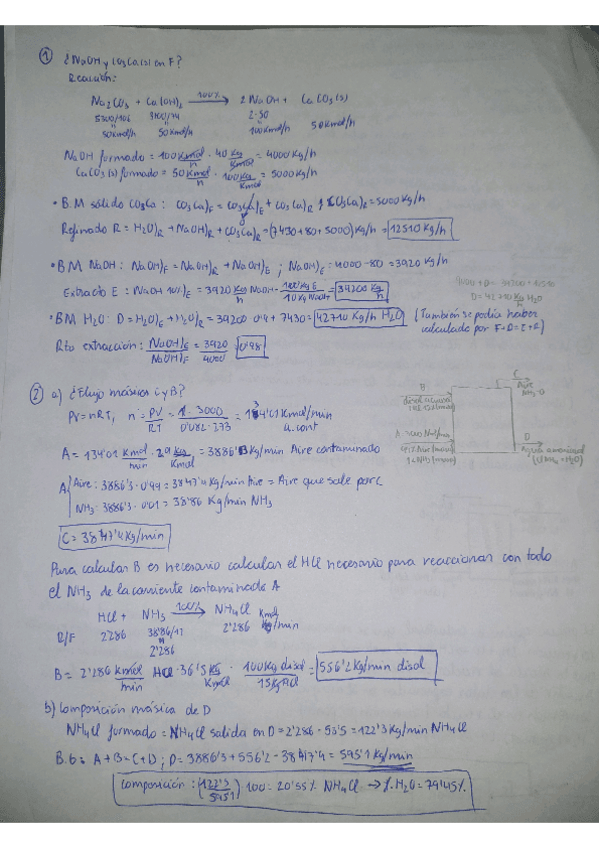 ① ¿NaOH y CO3Ca(s) en F?
Reacción:
Na2CO3 + Ca(OH)2 →100% 2 NaOH + CaCO3(s)
5300/106 3700/74 2·50
50 Kmol/h 50 Kmol/h 100 Kmol/h 50 Kmol/h
NaOH formado = 100 Kmol/h · 40 Kg/Kmol = 4000 Kg/h
CaCO3(s) formado = 50 Kmol/h · 100 Kg/Kmol = 5000 Kg/h
• B.M sólido CO3Ca: CO3Ca)F = CO3Ca)E + CO3Ca)R ; CO3Ca)R = 5000 Kg/h
0
Refinado R = H2O)R + NaOH)R + CO3Ca)R = (7430+80+5000) Kg/h = 12510 Kg/h
• BM NaOH: NaOH)F = NaOH)R + NaOH)E ; NaOH)E = 4000-80 = 3920 Kg/h
Extracto E: NaOH 10%)E = 3920 Kg/h NaOH · 100 Kg E/10 Kg NaOH = 39200 Kg/h
• BM H2O: D = H2O)E + H2O)R = 39200·0'9 + 7430 = 42710 Kg/h H2O (También se podía haber
calculado por F+D=E+R)
D = 42710 Kg/h H2O
Rto extracción: NaOH)E/NaOH)F = 3920/4000 = 0'98
② a) ¿Flujo másico C y B?
PV=nRT, n = PV/RT = 1·3000/0'082·273 = 134'01 Kmol/min
a.cont
A = 134'01 Kmol/min · 29 Kg/Kmol = 3886'3 Kg/min Aire contaminado
A Aire: 3886'3·0'99 = 3847'4 Kg/min Aire = Aire que sale por C
NH3: 3886'3·0'01 = 38'86 Kg/min NH3
C = 3847'4 Kg/min
B
C
Aire
D
Para calcular B es necesario calcular el HCl necesario para reaccionar con todo
el NH3 de la corriente contaminada A
HCl + NH3 →100% NH4Cl Kmol
R/F 2'286 38'86/17 2'286 /min
2'286
B = 2'286 Kmol/min HCl · 36'5 Kg/Kmol · 100 Kg disol/15 Kg HCl = 556'2 Kg/min disol
b) Composición másica de D
NH4Cl formado = NH4Cl salida en D = 2'286 · 53'5 = 122'3 Kg/min NH4Cl
B.G: A+B=C+D ; D = 3886'3 + 556'2 - 3847'4 = 595'1 Kg/min
Composición: (122'3/595'1) 100 = 20'55% NH4Cl → %H2O = 79'45%